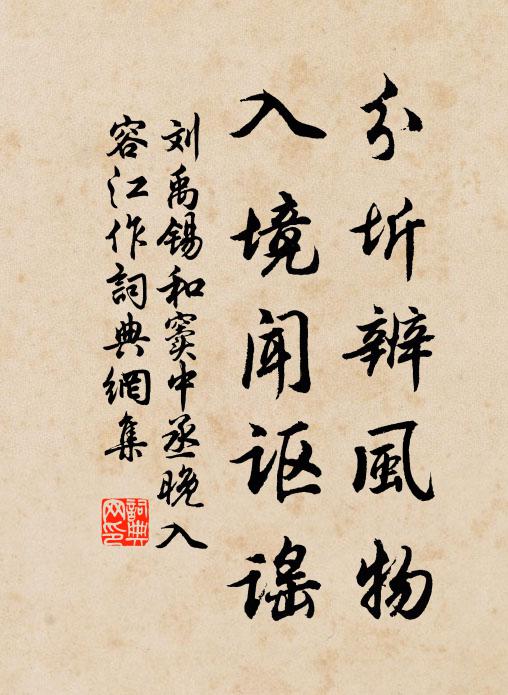 分圻辨風物
入境闻讴謡
刘禹锡和窦中丞晚入
容江作詞典網集
詞典网印